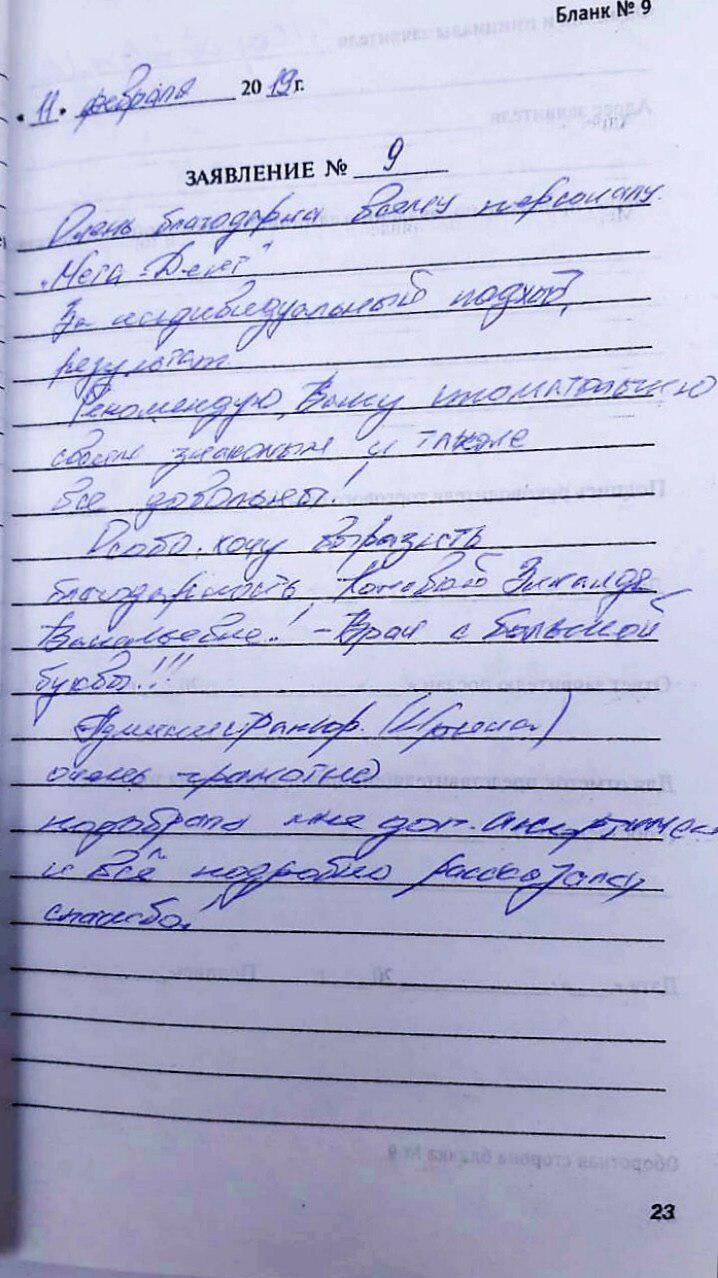 Бланк № 9
"11" февраля 2019 г.
ЗАЯВЛЕНИЕ № 9
Очень благодарна всему персоналу
"Мега-Дент"
За индивидуальный подход,
результат.
Рекомендую Вашу стоматологию
своим знакомым и также
все довольны!
Особо хочу выразить
благодарность
! - Врач с большой
буквы!!!
Администратор (Ирина)
очень грамотно
подобрала мне доп.
и всё подробно рассказала,
спасибо!
23